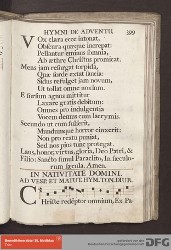 HYMNI DE ADVENTU. 399
VOx clara ecce intonat,
Obscura quæque increpat:
Pellantur eminus somnia,
Ab æthre Christus promicat.
Mens jam resurgat torpida,
Quæ sorde extat saucia:
Sidus refulget jam novum,
Ut tollat omne noxium.
E sursum agnus mittitur
Laxare gratis debitum:
Omnes pro indulgentia
Vocem demus cum lacrymis.
Secundo ut cum fulserit,
Mundumque horror cinxerit:
Non pro reatu puniat,
Sed nos pius tunc protegat.
Laus, honor, virtus, gloria, Deo Patri, &
Filio: Sancto simul Paraclito, In sæculo-
rum sæcula. Amen.
IN NATIVITATE DOMINI,
AD VESP. ET MATUT. HYM.
CHriste redemptor omnium, Ex Pa
DFG